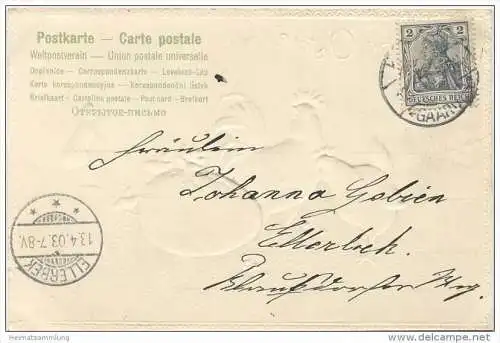 Postkarte — Carte postale
Weltpostverein — Union postale universelle
Dopisnice — Correspondenzkarte — Levelező-Lap
Karta korespondencyjna — Korespondenční lístek
Brievkaart — Cartolina postale — Post card — Brefkort
Открытое письмо
2 2
DEUTSCHES REICH
GAARD
Fräulein
Johanna Gobien
Ellerbek.
ELLERBEK
13.4.03.7-8V.
Heimatsammlung
www.ansichtskartenversand.com